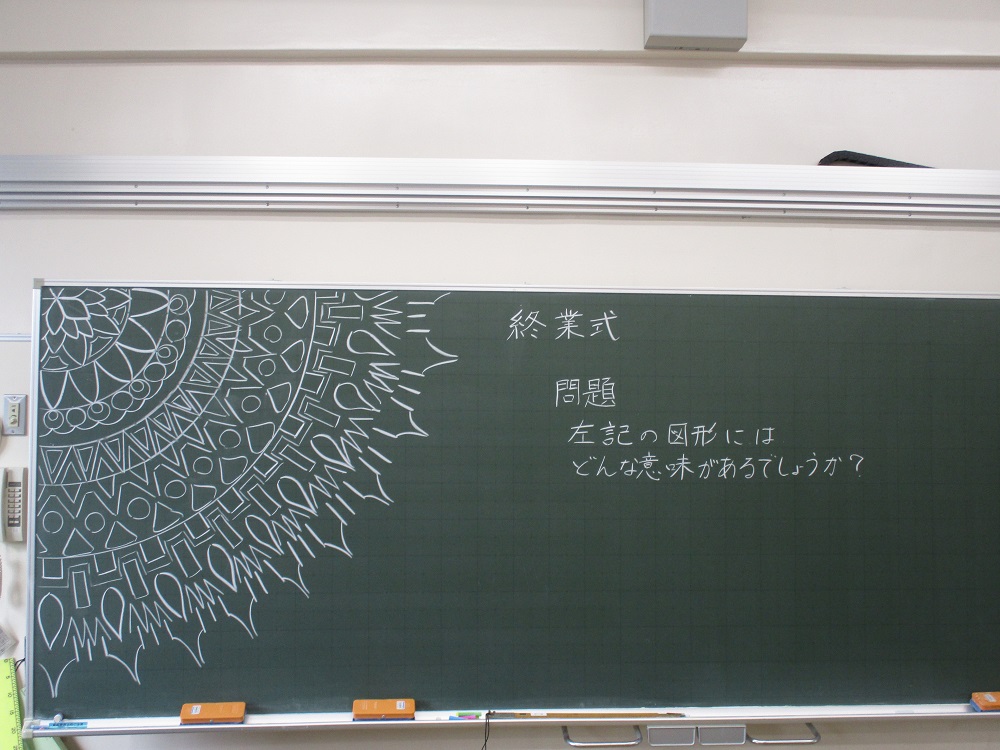 終業式
問題
左記の図形には
どんな意味があるでしょうか？